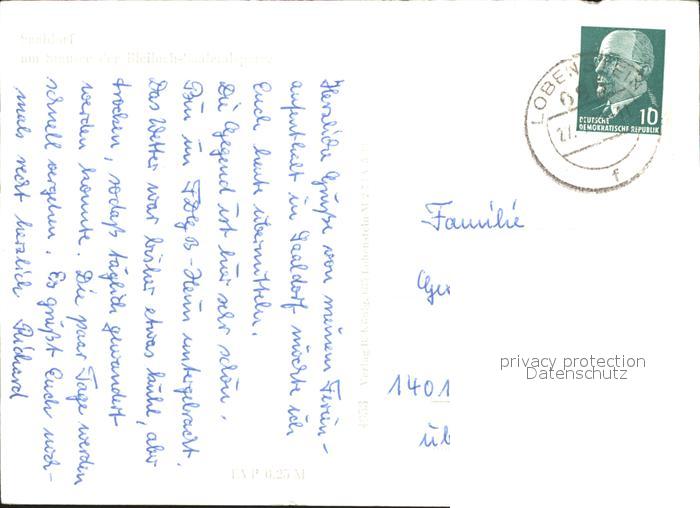 Saaldorf
am Stausee der Bleiloch-Saaletalsperre
Herzliche Grüße von meinem Ferien-
aufenthalt in Saaldorf möchte ich
Euch heute übermitteln.
Die Gegend ist hier sehr schön.
Bin im FDGB-Heim untergebracht.
Das Wetter war bisher etwas kühl, aber
trocken, sodaß täglich gewandert
werden konnte. Die paar Tage werden
schnell vergehen. Es grüßt Euch noch-
mals recht herzlich Richard
EVP 0.25 M
LOBENSTEIN
27.
f
10
DEUTSCHE
DEMOKRATISCHE REPUBLIK
Familie
Ge
1401
üb
privacy protection
Datenschutz